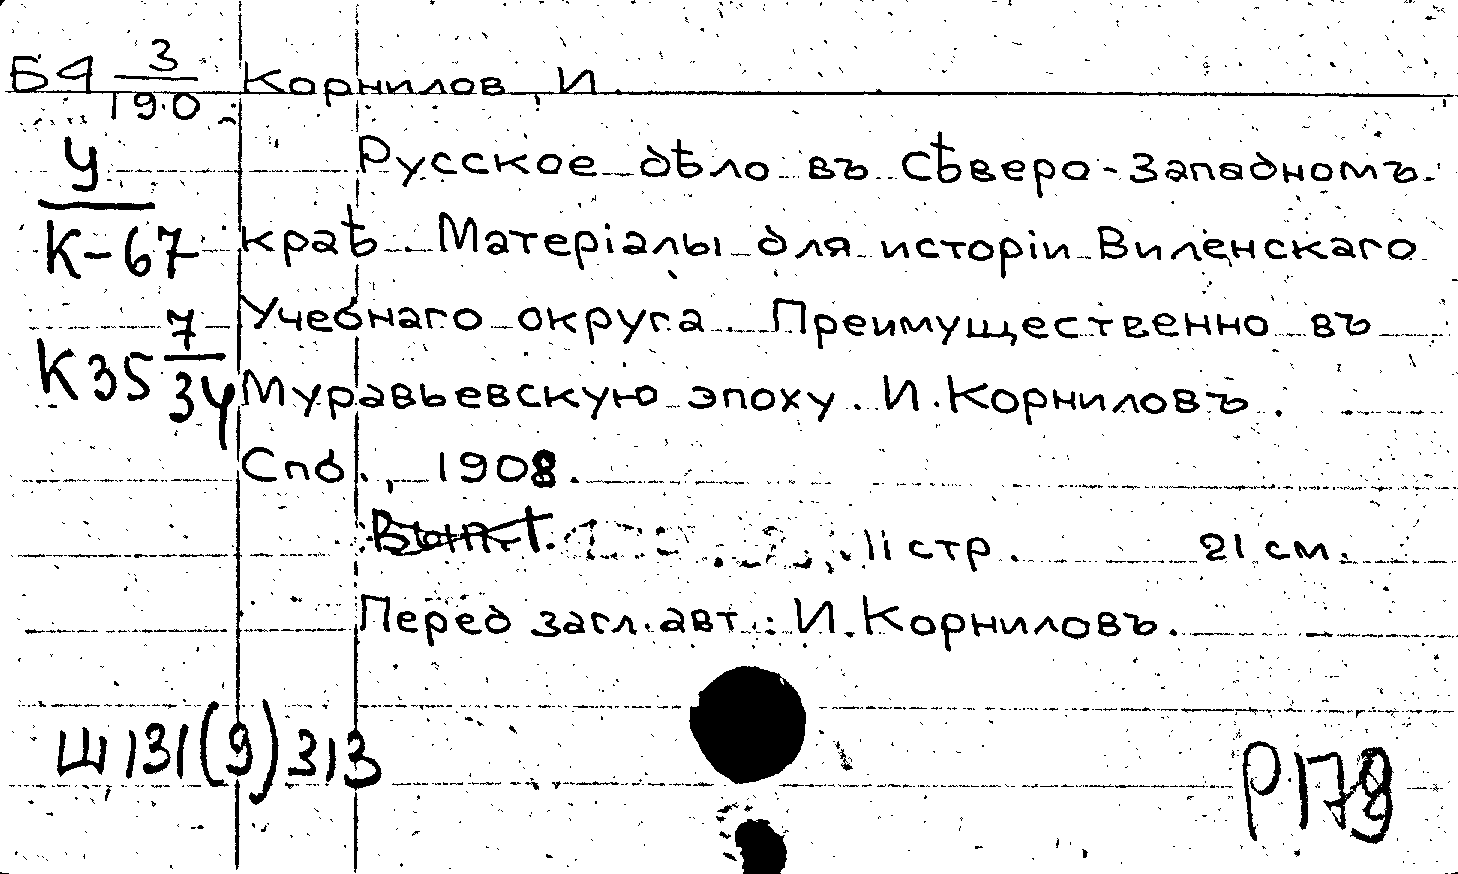 Б4 3/190 Корнилов, И.
У/К-67
Русское дѣло въ Сѣверо-Западномъ
краѣ. Матеріалы для исторіи Виленскаго
Учебнаго округа. Преимущественно въ
К35 7/34
Муравьевскую эпоху. И. Корниловъ.
Спб., 1908.
Вып. 1. II стр. 21 см.
Перед загл. авт.: И. Корниловъ.
Ш131(9)313
Р178